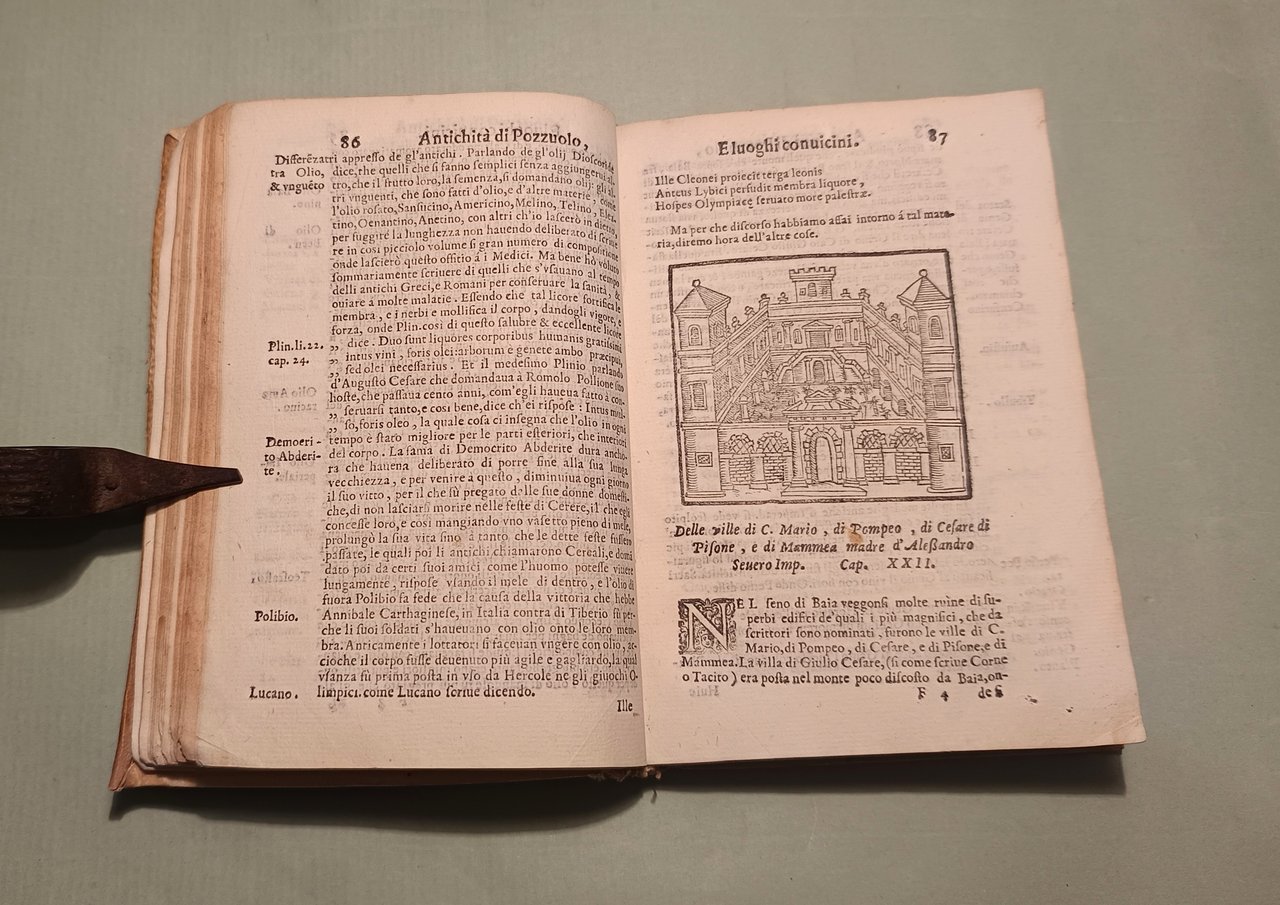 86 Antichità di Pozzuolo,
Differẽza tra Olio, & vnguẽto
tri appresso de gl'antichi. Parlando de gl'olij Dioscoride
dice, che quelli che si fanno semplici senza aggiungerui al
tro, che il frutto loro, la semenza, si domandano olij: gli al
tri vnguenti, che sono fatti d'olio, e d'altre materie, come
l'olio rosato, Sansucino, Americino, Melino, Telino,
tino, Oenantino, Anetino, con altri ch'io lascerò in dietro,
per fuggire la lunghezza non hauendo deliberato di scriue
re in cosi picciolo volume si gran numero di compositione
onde lascierò questo offitio à i Medici. Ma bene hò voluto
sommariamente scriuere di quelli che s'vsauano al tempo
delli antichi Greci, e Romani per conseruare la sanità, &
ouiare à molte malatie. Essendo che tal licore fortifica le
membra, e i nerbi e mollifica il corpo, dandogli vigore, e
forza, onde Plin. cosi di questo salubre & eccellente licore
Plin. li. 22. cap. 24.
„ dice. Duo sunt liquores corporibus humanis gratissimi
„ intus vini, foris olei: arborum è genere ambo præcipui,
„ sed olei necessarius. Et il medesimo Plinio parlando
d'Augusto Cesare che domandaua à Romolo Pollione suo
hoste, che passaua cento anni, com'egli haueua fatto à con
„ seruarsi tanto, e cosi bene, dice ch'ei rispose: Intus mul
„ so, foris oleo, la quale cosa ci insegna che l'olio in ogni
Democri-
to Abderi-
te.
tempo è stato migliore per le parti esteriori, che interiori
del corpo. La fama di Democrito Abderite dura ancho
ra che haueua deliberato di porre fine alla sua lunga
vecchiezza, e per venire a questo, diminuiua ogni giorno
il suo vitto, per il che fù pregato dalle sue donne domesti-
che, di non lasciarsi morire nelle feste di Cerere, il che egli
concesse loro, e cosi mangiando vno vasetto pieno di mele,
prolungò la sua vita sino à tanto che le dette feste fussero
passate, le quali poi li antichi chiamarono Cereali, e domã
dato poi da certi suoi amici come l'huomo potesse viuere
lungamente, rispose vsando il mele di dentro, e l'olio di
fuora Polibio fa fede che la causa della vittoria che hebbe
Polibio.
Annibale Carthaginese, in Italia contra di Tiberio fù per-
che li suoi soldati s'haueuano con olio onto le loro mem
bra. Anticamente i lottatori si faceuan vngere con olio, ac-
cioche il corpo fusse deuenuto più agile e gagliardo, la qual
vsanza fù prima posta in vso da Hercole ne gli giuochi O-
Lucano.
limpici. come Lucano scriue dicendo.
Ille
E luoghi conuicini. 87
Ille Cleonei proiecit terga leonis
Anteus Lybici persudit membra liquore,
Hospes Olympiacę seruato more palestræ.
Ma per che discorso habbiamo assai intorno à tal mate-
ria, diremo hora dell'altre cose.
Delle ville di C. Mario, di Pompeo, di Cesare di
Pisone, e di Mammea madre d'Aleßandro
Seuero Imp. Cap. XXII.
NEL seno di Baia veggonsi molte ruine di su-
perbi edifici de'quali i più magnifici, che da
scrittori sono nominati, furono le ville di C.
Mario, di Pompeo, di Cesare, e di Pisone, e di
Mammea. La villa di Giulio Cesare, (si come scriue Corne
o Tacito) era posta nel monte poco discosto da Baia, on-
F 4 de S